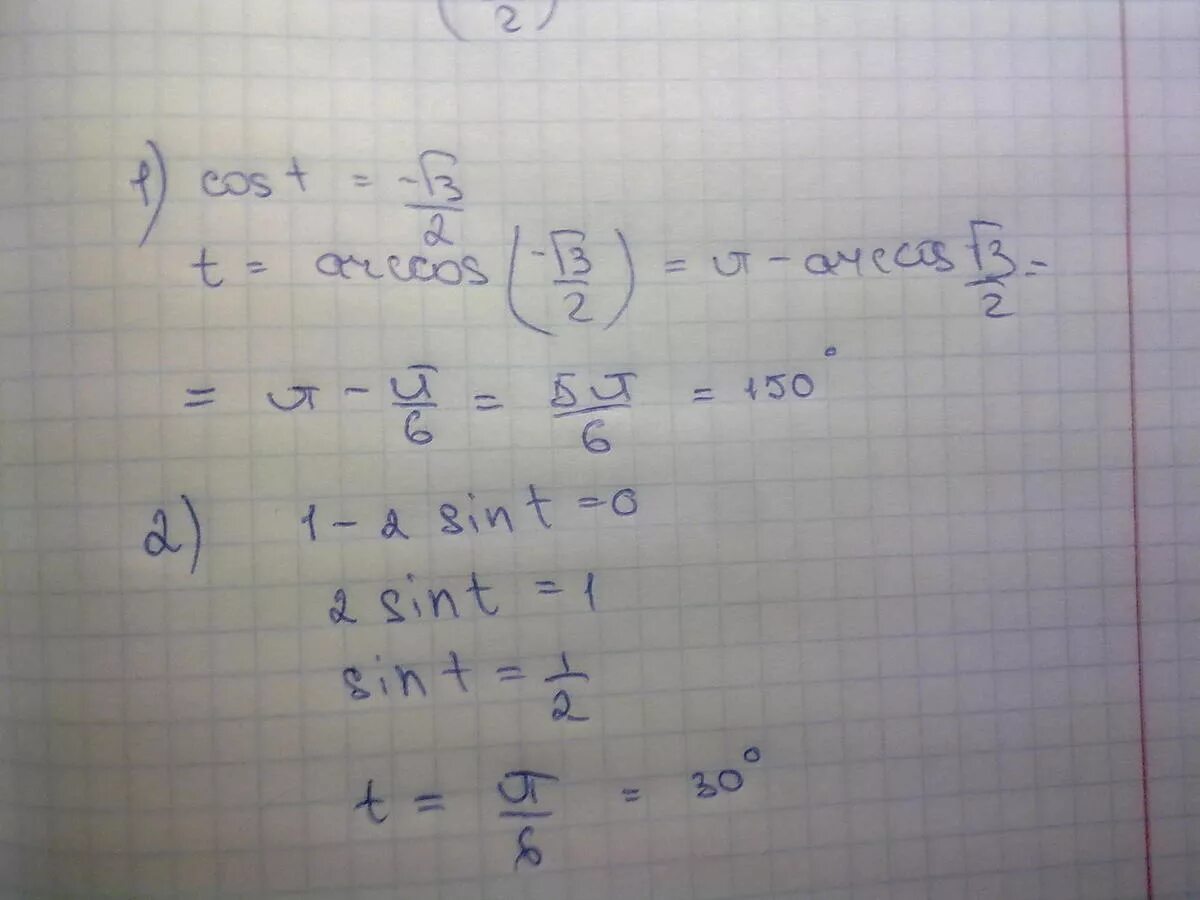 2)
1) cos t = -√3/2
t = arccos (-√3/2) = π - arccos √3/2 =
= π - π/6 = 5π/6 = 150°
2) 1 - 2 sin t = 0
2 sin t = 1
sin t = 1/2
t = π/6 = 30°